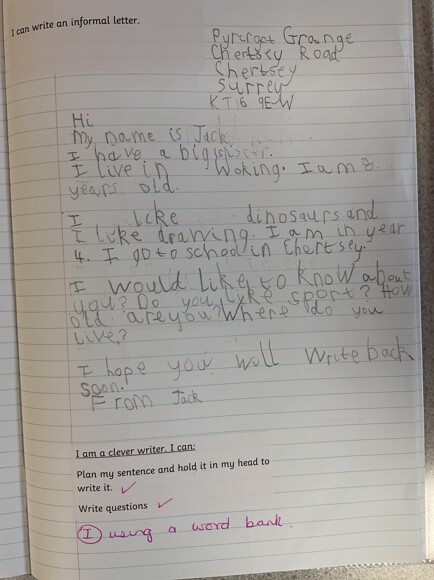 I can write an informal letter.
Pyrcroft Grange
Chertsey Road
Chertsey
Surrey
KT16 9EW
Hi
My name is Jack.
I have a big sister.
I live in Woking. I am 8
years old.
I like dinosaurs and
I like drawing. I am in year
4. I go to school in Chertsey.
I would like to know about
you? Do you like sport? How
old are you? Where do you
live?
I hope you will Write back
soon.
From Jack
I am a clever writer. I can:
Plan my sentence and hold it in my head to
write it. ✓
Write questions ✓
I using a word bank.